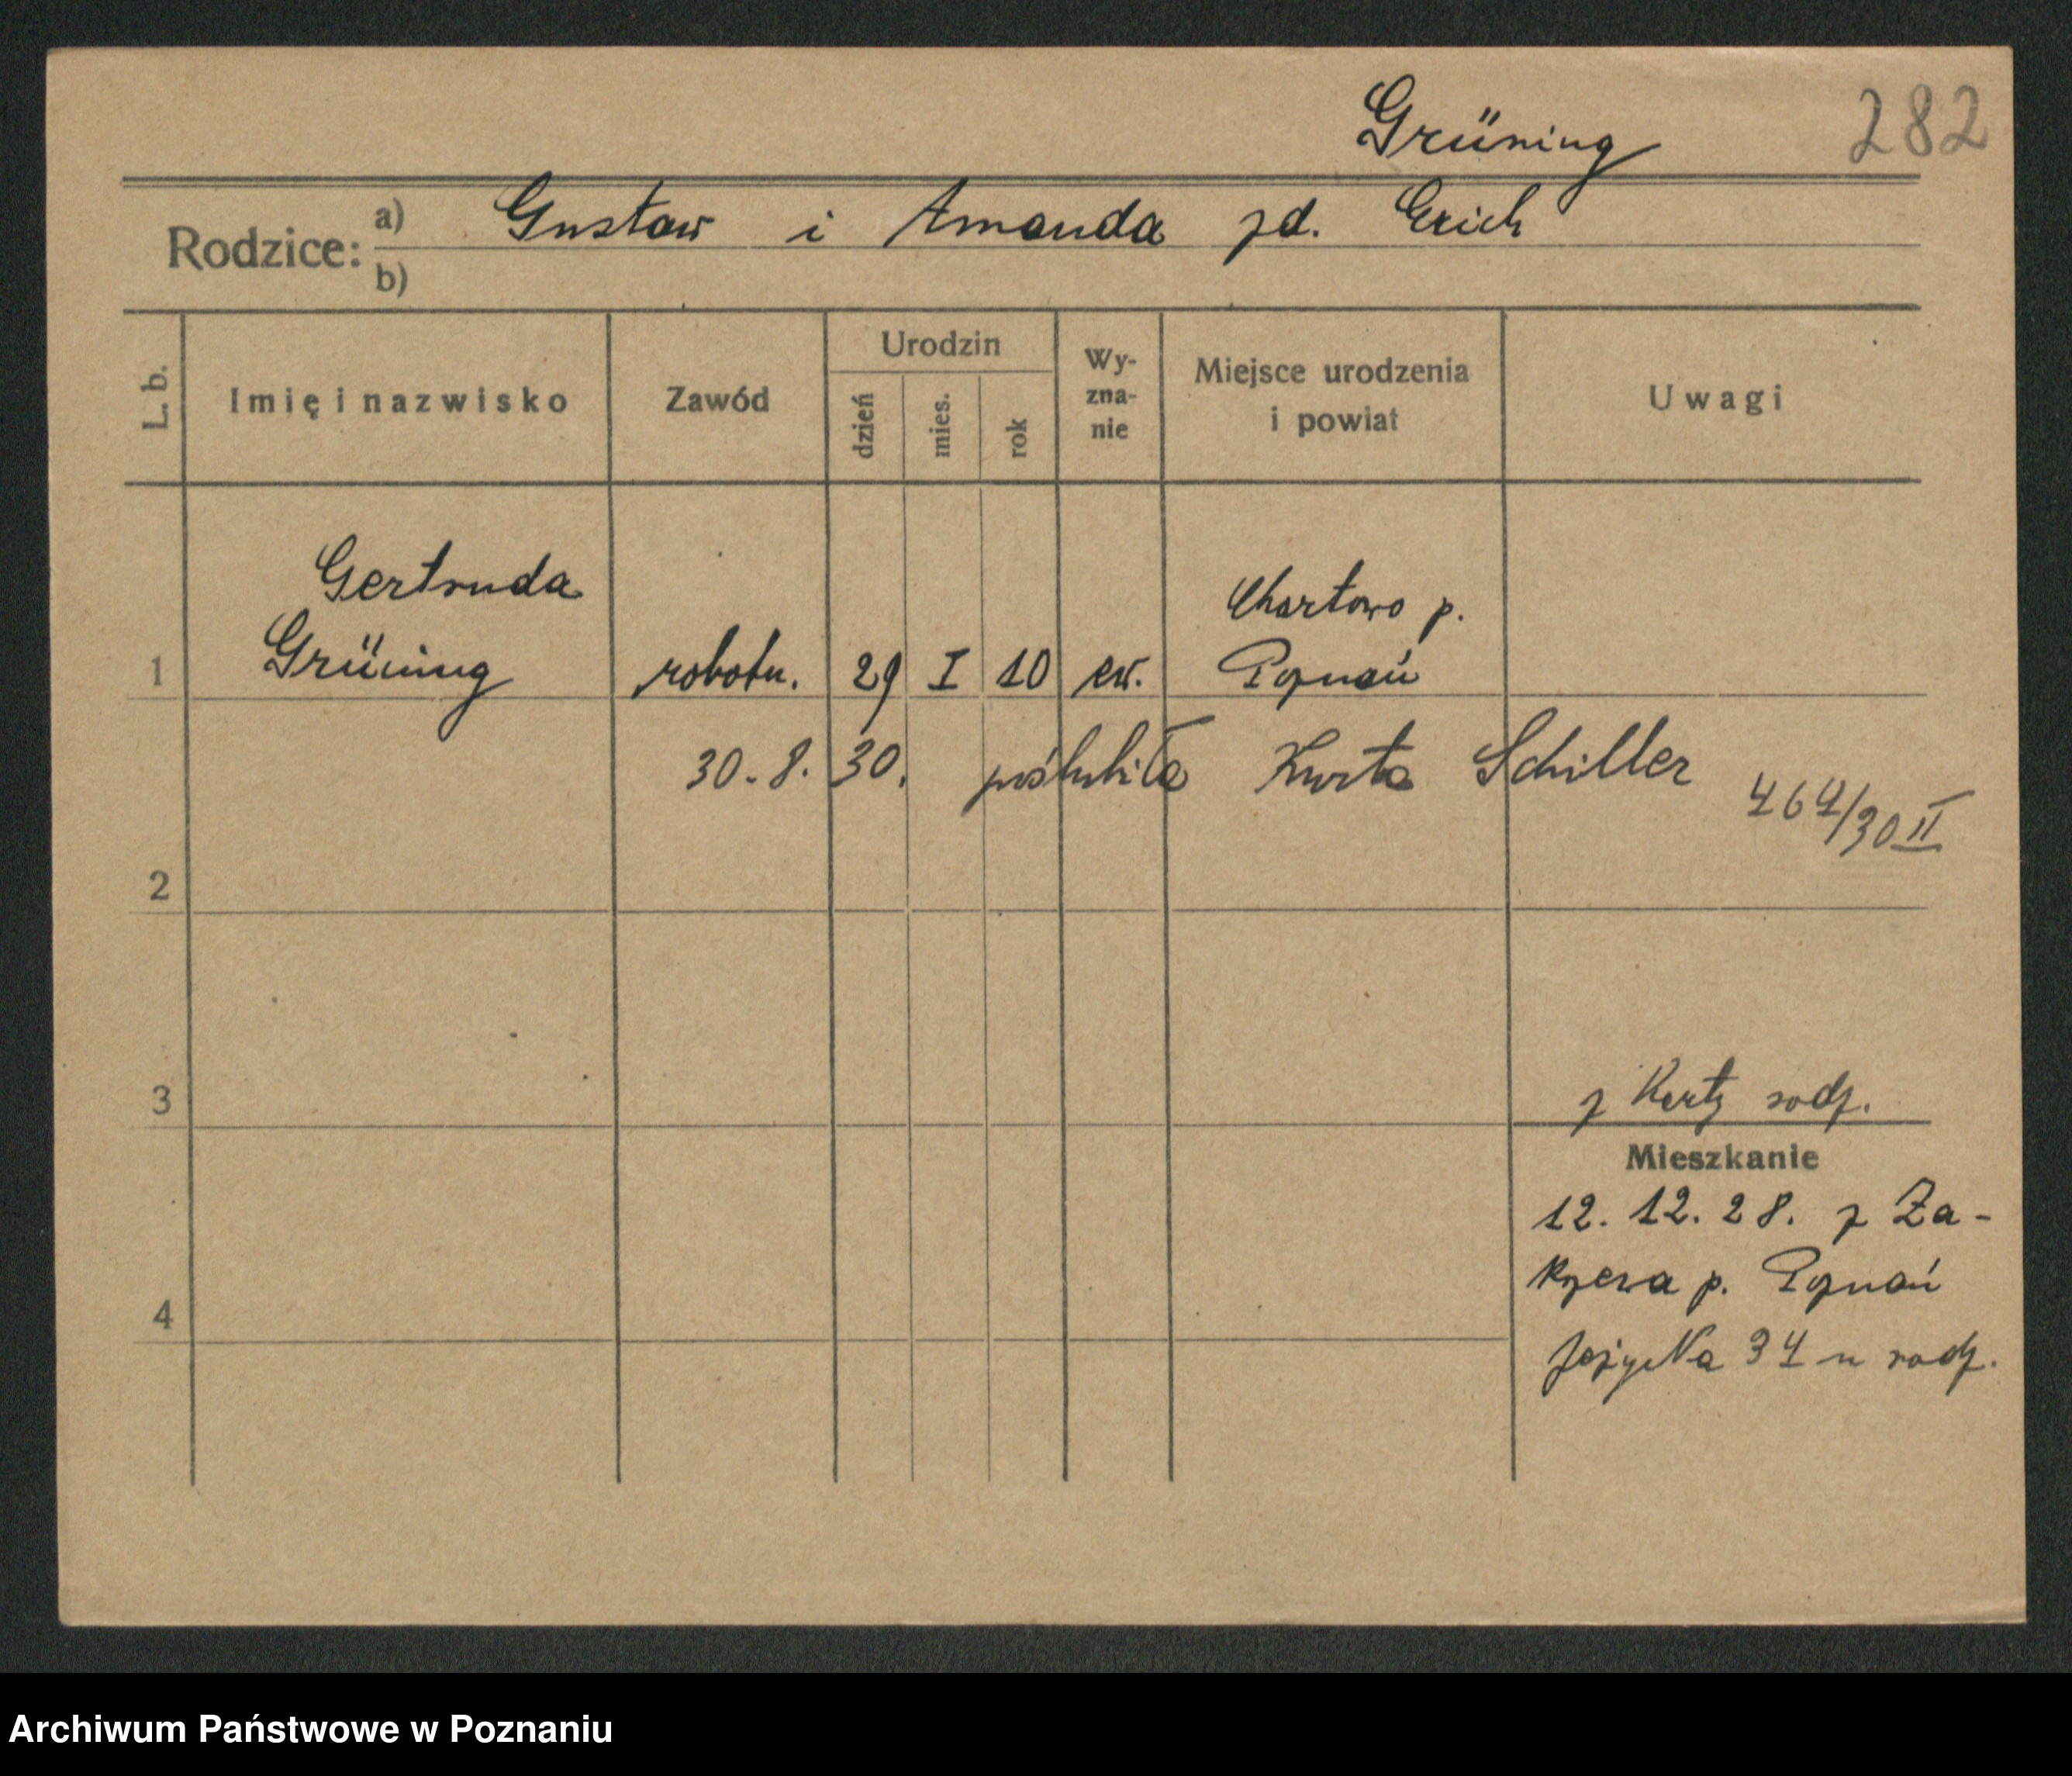 Grüning 282
Rodzice: a) Gustaw i Amanda zd. Erich
b)
L. b. Imię i nazwisko Zawód Urodzin dzień mies. rok Wy-zna-nie Miejsce urodzenia i powiat Uwagi
Gertruda Chartowo p.
1 Grüning robotn. 29 I 10 ew. Poznań
30. 8. 30. poślubiła Kurta Schiller
464/30 II
2
3 z Karty rodz.
Mieszkanie
12. 12. 28. z Za-
krzewa p. Poznań
4
Jeżycka 34 u rodz.
Archiwum Państwowe w Poznaniu